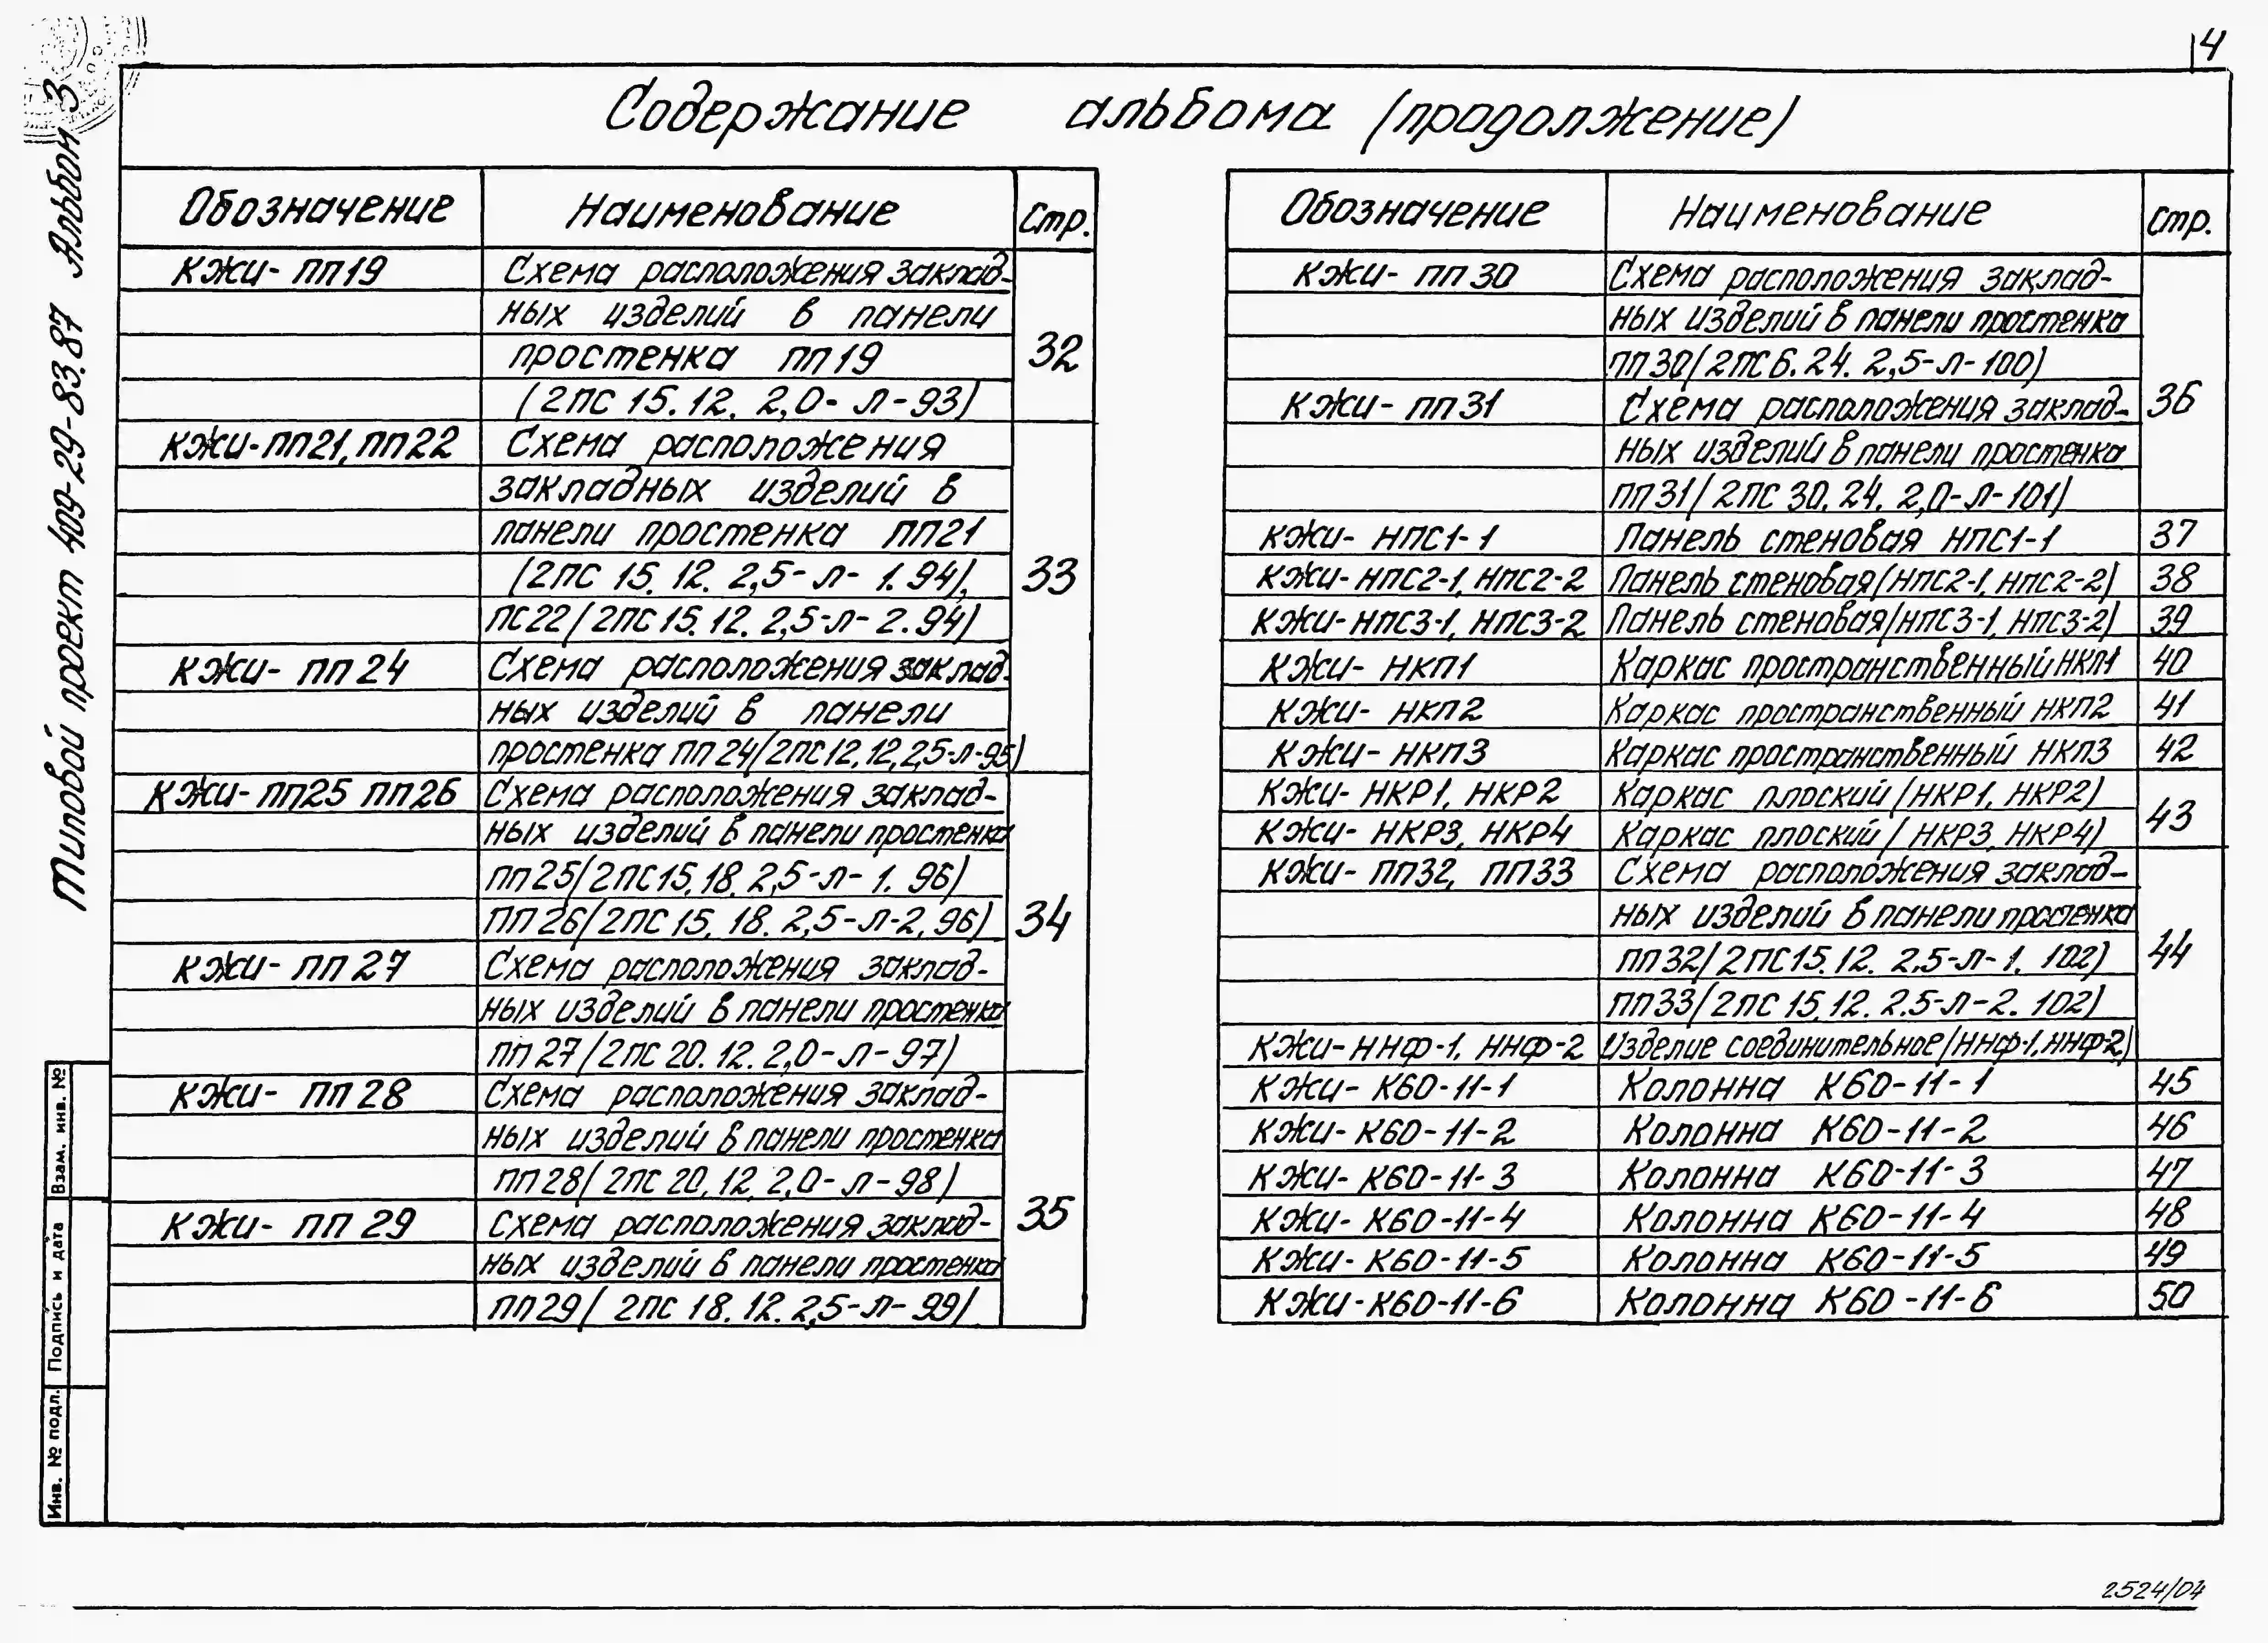 4
Содержание альбома (продолжение)
Типовой проект 409-29-83.87 Альбом 3
Обозначение Наименование Стр.
КЖИ- ПП19 Схема расположения заклад-
ных изделий в панели
простенка ПП19 32
(2ПС 15.12. 2,0- Л-93)
КЖИ-ПП21, ПП22 Схема расположения
закладных изделий в
панели простенка ПП21
(2ПС 15. 12. 2,5-Л- 1.94), 33
ПС22/2ПС 15. 12. 2,5-Л- 2.94)
КЖИ- ПП 24 Схема расположения заклад-
ных изделий в панели
простенка ПП 24/2ПС 12.12,2,5-Л-95)
КЖИ- ПП25 ПП26 Схема расположения заклад-
ных изделий в панели простенка
ПП25/2ПС15.18. 2,5-Л- 1. 96)
ПП26/2ПС 15. 18. 2,5-Л-2, 96) 34
КЖИ- ПП 27 Схема расположения заклад-
ных изделий в панели простенка
ПП 27/2ПС 20. 12. 2,0-Л-97)
КЖИ- ПП 28 Схема расположения заклад-
ных изделий в панели простенка
ПП28/ 2ПС 20, 12, 2,0- Л-98)
КЖИ- ПП 29 Схема расположения заклад- 35
ных изделий в панели простенка
ПП29/ 2ПС 18. 12. 2,5-Л- 99)
Обозначение Наименование Стр.
КЖИ- ПП 30 Схема расположения заклад-
ных изделий в панели простенка
ПП30/2ПС 6. 24. 2,5-Л-100)
КЖИ- ПП31 Схема расположения заклад- 36
ных изделий в панели простенка
ПП31/ 2ПС 30. 24. 2,0-Л-101)
КЖИ- НПС1-1 Панель стеновая НПС1-1 37
КЖИ- НПС2-1, НПС2-2 Панель стеновая/НПС2-1, НПС2-2) 38
КЖИ-НПС3-1, НПС3-2 Панель стеновая/НПС3-1, НПС3-2) 39
КЖИ- НКП1 Каркас пространственный НКП1 40
КЖИ- НКП2 Каркас пространственный НКП2 41
КЖИ- НКП3 Каркас пространственный НКП3 42
КЖИ- НКР1, НКР2 Каркас плоский/НКР1, НКР2)
КЖИ- НКР3, НКР4 Каркас плоский/ НКР3, НКР4) 43
КЖИ- ПП32, ПП33 Схема расположения заклад-
ных изделий в панели простенка
ПП32/2ПС15. 12. 2,5-Л-1. 102) 44
ПП33/2ПС 15. 12. 2.5-Л-2. 102)
КЖИ-ННФ-1, ННФ-2 Изделие соединительное/ННФ-1, ННФ-2)
КЖИ- К60-11-1 Колонна К60-11-1 45
КЖИ-К60-11-2 Колонна К60-11-2 46
КЖИ- К60-11-3 Колонна К60-11-3 47
КЖИ- К60-11-4 Колонна К60-11-4 48
КЖИ- К60-11-5 Колонна К60-11-5 49
КЖИ-К60-11-6 Колонна К60-11-6 50
Взам. инв. №
Подпись и дата
Инв. № подл.
2524/04